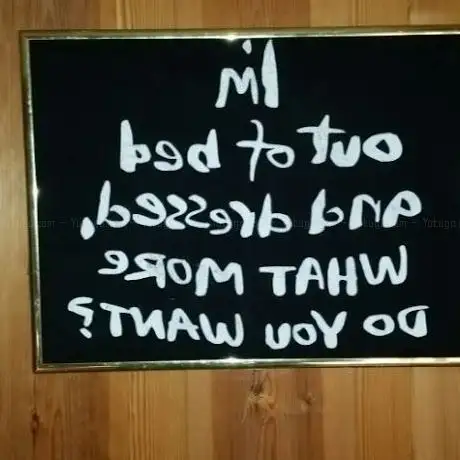 I'm
out of bed
and dressed,
WHAT MORE
DO YOU WANT?